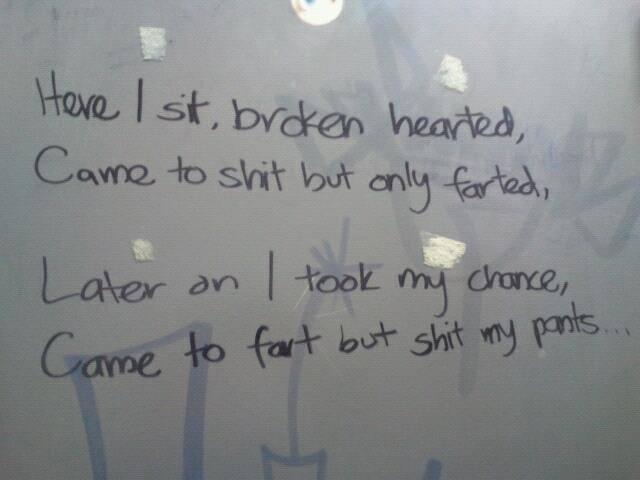 Here I sit, broken hearted,
Came to shit but only farted,
Later on I took my chance,
Came to fart but shit my pants...